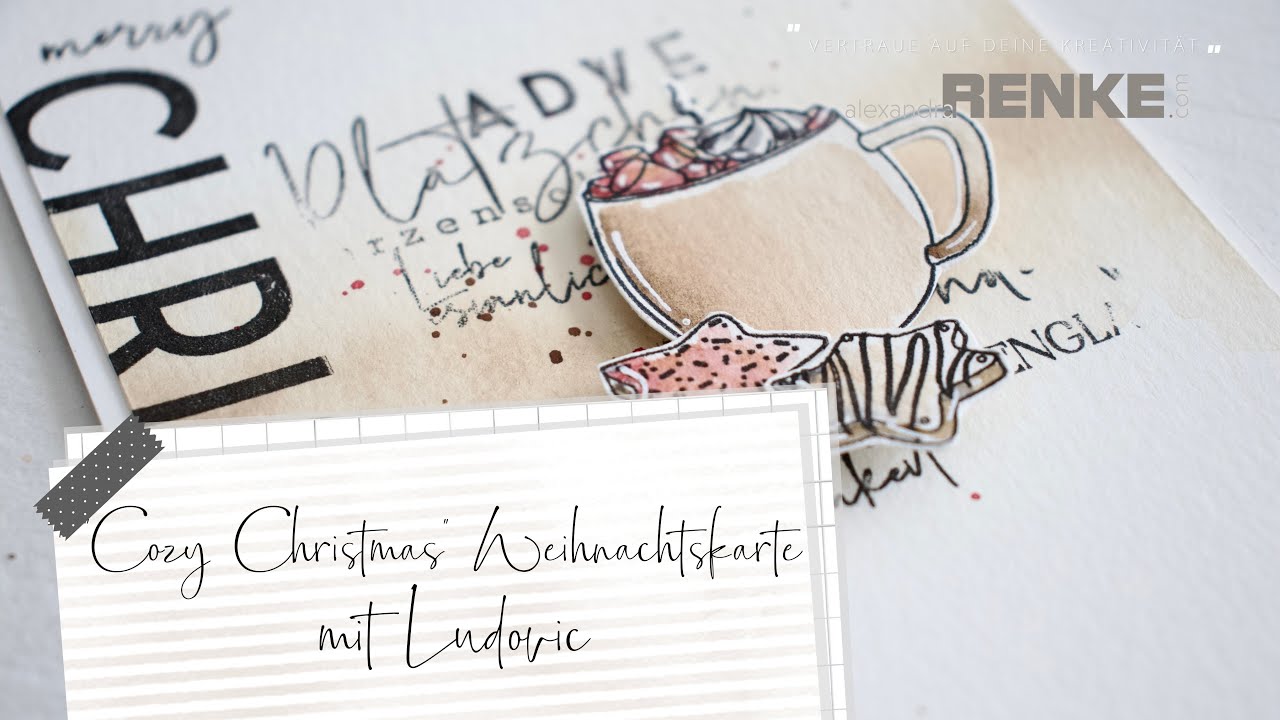 „ VERTRAUE AUF DEINE KREATIVITÄT "
alexandra RENKE.com
merry
CHRI
ADVE
platzchen
rzens
Liebe
ENGLA
"Cozy Christmas" Weihnachtskarte
mit Ludovic